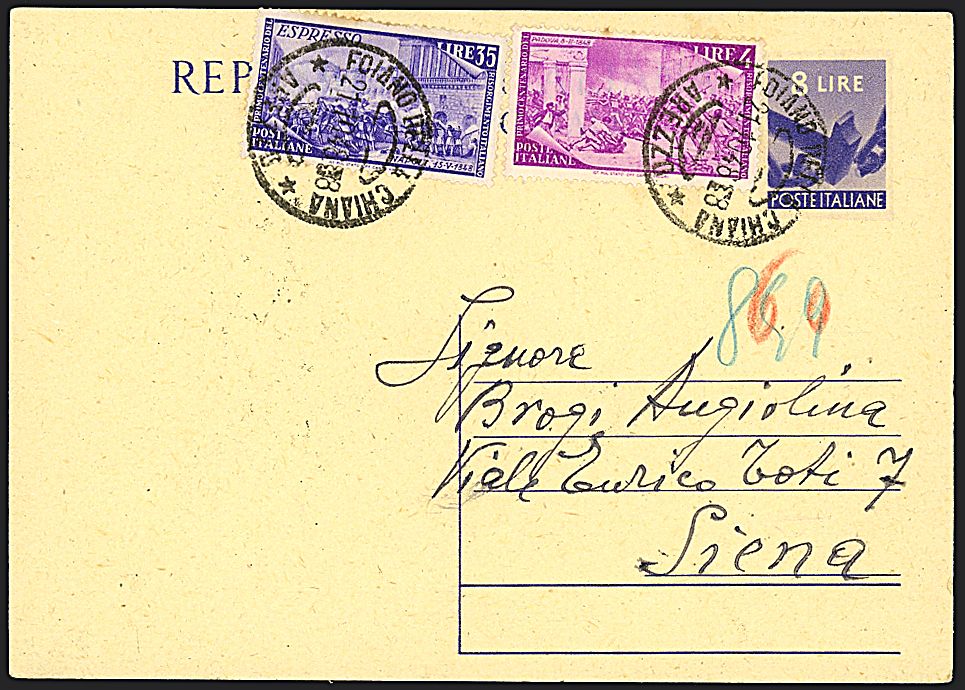 REP
PRIMO CENTENARIO DEL
ESPRESSO
LIRE 35
RISORGIMENTO ITALIANO
POSTE
ITALIANE
NAPOLI 15-V-1848
PRIMO CENTENARIO DEL
PADOVA 8-II-1848
LIRE 4
RISORGIMENTO ITALIANO
POSTE
ITALIANE
8 LIRE
POSTE ITALIANE
FOIANO DELLA CHIANA
FOIANO DELLA CHIANA
* AREZZO *
869
Signora
Brogi Angiolina
Viale Enrico Toti 7
Siena